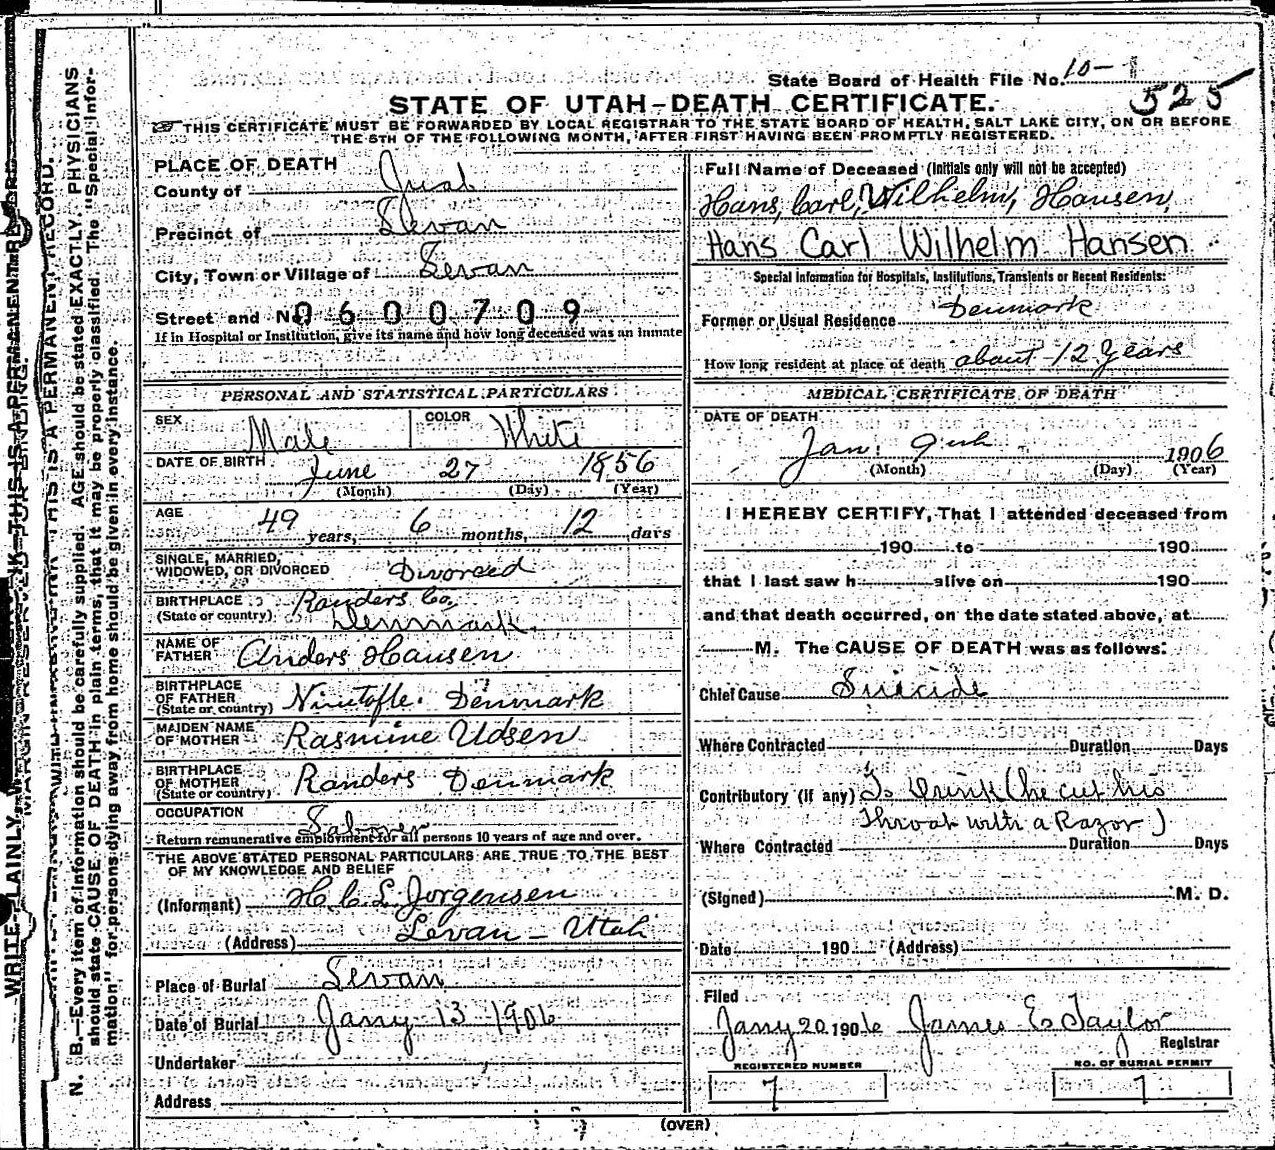 State Board of Health File No. 10-
525
STATE OF UTAH-DEATH CERTIFICATE.
THIS CERTIFICATE MUST BE FORWARDED BY LOCAL REGISTRAR TO THE STATE BOARD OF HEALTH, SALT LAKE CITY, ON OR BEFORE
THE 5TH OF THE FOLLOWING MONTH, AFTER FIRST HAVING BEEN PROMPTLY REGISTERED.
PLACE OF DEATH
County of Juab
Precinct of Levan
City, Town or Village of Levan
Street and No. 0600709
If in Hospital or Institution, give its name and how long deceased was an inmate
PERSONAL AND STATISTICAL PARTICULARS
SEX Male COLOR White
DATE OF BIRTH June 27 1856
(Month) (Day) (Year)
AGE 49 years, 6 months, 12 days
SINGLE, MARRIED,
WIDOWED, OR DIVORCED Divorced
BIRTHPLACE Randers Co,
(State or country) Denmark.
NAME OF
FATHER Anders Hansen
BIRTHPLACE
OF FATHER
(State or country) Denmark
MAIDEN NAME
OF MOTHER Rasmine Udsen
BIRTHPLACE
OF MOTHER
(State or country) Randers Denmark
OCCUPATION
Laborer
Return remunerative employment for all persons 10 years of age and over.
THE ABOVE STATED PERSONAL PARTICULARS ARE TRUE TO THE BEST
OF MY KNOWLEDGE AND BELIEF
(Informant) H. C. L. Jorgensen
(Address) Levan - Utah
Place of Burial Levan
Date of Burial Jany 13 1906
Undertaker
Address
Full Name of Deceased (Initials only will not be accepted)
Hans, Carl, Wilhelm, Hansen,
Hans Carl Wilhelm Hansen
Special Information for Hospitals, Institutions, Transients or Recent Residents:
Former or Usual Residence Denmark
How long resident at place of death about 12 Years
MEDICAL CERTIFICATE OF DEATH
DATE OF DEATH
Jan. 9th 1906
(Month) (Day) (Year)
I HEREBY CERTIFY, That I attended deceased from
190 to 190
that I last saw h alive on 190
and that death occurred, on the date stated above, at
M. The CAUSE OF DEATH was as follows:
Chief Cause Suicide
Where Contracted Duration Days
Contributory (if any) To Drink (he cut his
Throat with a Razor)
Where Contracted Duration Days
(Signed) M. D.
Date 190 (Address)
Filed
Jany 20 1906 James E. Taylor
Registrar
REGISTERED NUMBER
7
NO. OF BURIAL PERMIT
7
(OVER)
N. B.—Every item of information should be carefully supplied. AGE should be stated EXACTLY. PHYSICIANS
should state CAUSE OF DEATH in plain terms, that it may be properly classified. The "Special Information" for persons dying away from home should be given in every instance.